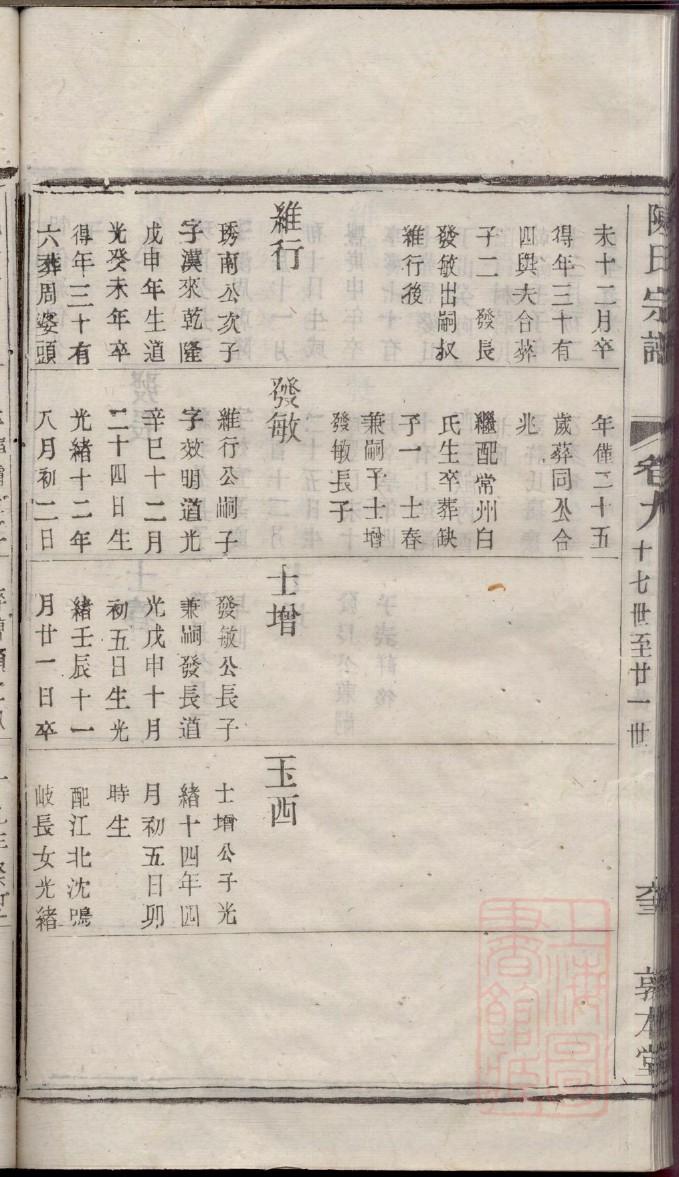 陳氏宗譜
卷九
十七世至廿一世
敦本堂
未十二月卒
得年三十有
四與夫合葬
子二 發長
發敏出嗣叔
維行後
維行
琇南公次子
字漢來乾隆
戊申年生道
光癸未年卒
得年三十有
六葬周婆頭
年僅二十五
歲葬同公合
兆
繼配常州白
氏生卒葬缺
子一 士春
兼嗣子士增
發敏長子
發敏
維行公嗣子
字效明道光
辛巳十二月
二十四日生
光緒十二年
八月初二日
士增
發敏公長子
兼嗣發長道
光戊申十月
初五日生光
緒壬辰十一
月廿一日卒
玉西
士增公子光
緒十四年四
月初五日卯
時生
配江北沈鳴
岐長女光緒
上海圖書館藏